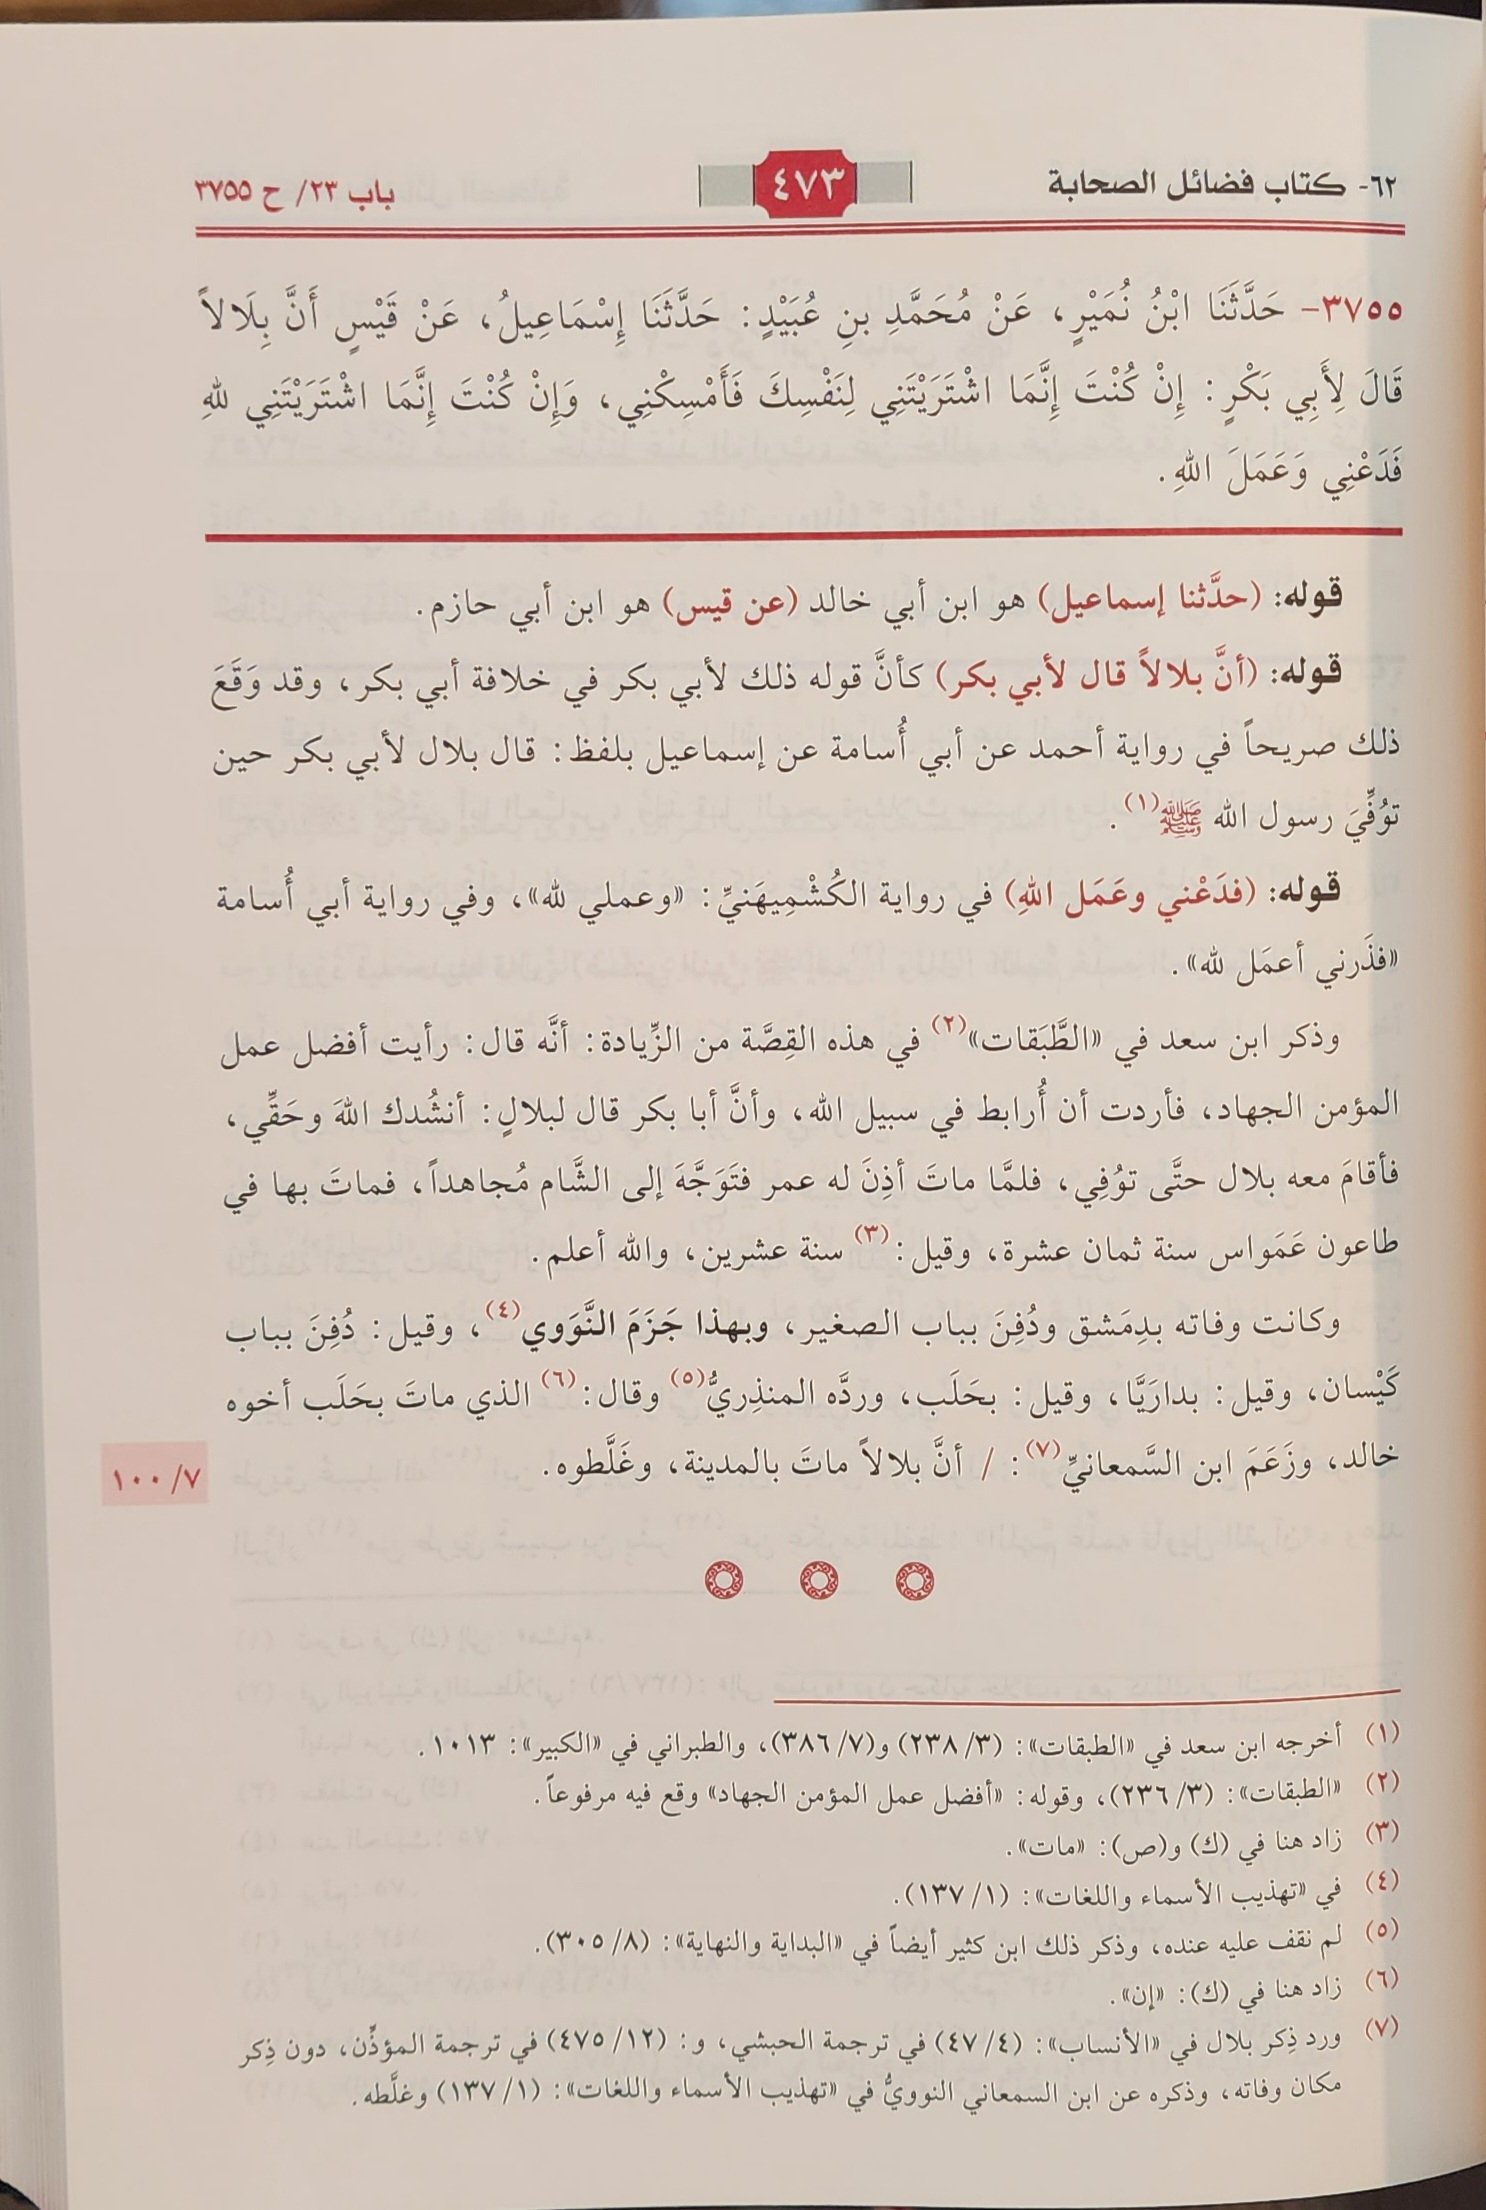 ٦٢- كتاب فضائل الصحابة
٤٧٣
باب ٢٣/ ح ٣٧٥٥
٣٧٥٥- حَدَّثَنَا ابْنُ نُمَيْرٍ، عَنْ مُحَمَّدِ بنِ عُبَيْدٍ: حَدَّثَنَا إِسْمَاعِيلُ، عَنْ قَيْسٍ أَنَّ بِلَالاً
قَالَ لِأَبِي بَكْرٍ: إِنْ كُنْتَ إِنَّمَا اشْتَرَيْتَنِي لِنَفْسِكَ فَأَمْسِكْنِي، وَإِنْ كُنْتَ إِنَّمَا اشْتَرَيْتَنِي للهِ
فَدَعْنِي وَعَمَلَ اللهِ.
قوله: (حدَّثنا إسماعيل) هو ابن أبي خالد (عن قيس) هو ابن أبي حازم.
قوله: (أنَّ بلالاً قال لأبي بكر) كأنَّ قوله ذلك لأبي بكر في خلافة أبي بكر، وقد وَقَعَ
ذلك صريحاً في رواية أحمد عن أبي أُسامة عن إسماعيل بلفظ: قال بلال لأبي بكر حين
توُفِّيَ رسول الله ﷺ(١).
قوله: (فدَعْني وعَمَل اللهِ) في رواية الكُشْمِيهَنيِّ: «وعملي لله»، وفي رواية أبي أُسامة
«فذَرني أعمَل لله».
وذكر ابن سعد في «الطَّبَقات»(٢) في هذه القِصَّة من الزِّيادة: أنَّه قال: رأيت أفضل عمل
المؤمن الجهاد، فأردت أن أُرابط في سبيل الله، وأنَّ أبا بكر قال لبلالٍ: أنشُدك اللهَ وحَقِّي،
فأقامَ معه بلال حتَّى توُفِي، فلمَّا ماتَ أذِنَ له عمر فتَوَجَّهَ إلى الشَّام مُجاهداً، فماتَ بها في
طاعون عَمَواس سنة ثمان عشرة، وقيل:(٣) سنة عشرين، والله أعلم.
وكانت وفاته بدِمَشق ودُفِنَ بباب الصغير، وبهذا جَزَمَ النَّوَوي(٤)، وقيل: دُفِنَ بباب
كَيْسان، وقيل: بدارَيَّا، وقيل: بحَلَب، وردَّه المنذِريُّ(٥) وقال:(٦) الذي ماتَ بحَلَب أخوه
خالد، وزَعَمَ ابن السَّمعانيِّ(٧): / أنَّ بلالاً ماتَ بالمدينة، وغَلَّطوه.
٧/ ١٠٠
(١) أخرجه ابن سعد في «الطبقات»: (٣/ ٢٣٨) و(٧/ ٣٨٦)، والطبراني في «الكبير»: ١٠١٣.
(٢) «الطبقات»: (٣/ ٢٣٦)، وقوله: «أفضل عمل المؤمن الجهاد» وقع فيه مرفوعاً.
(٣) زاد هنا في (ك) و(ص): «مات».
(٤) في «تهذيب الأسماء واللغات»: (١/ ١٣٧).
(٥) لم نقف عليه عنده، وذكر ذلك ابن كثير أيضاً في «البداية والنهاية»: (٨/ ٣٠٥).
(٦) زاد هنا في (ك): «إن».
(٧) ورد ذِكر بلال في «الأنساب»: (٤/ ٤٧) في ترجمة الحبشي، و: (١٢/ ٤٧٥) في ترجمة المؤذِّن، دون ذِكر
مكان وفاته، وذكره عن ابن السمعاني النوويُّ في «تهذيب الأسماء واللغات»: (١/ ١٣٧) وغلَّطه.